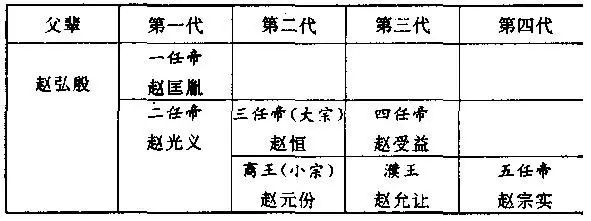 父辈 第一代 第二代 第三代 第四代
赵弘殷
一任帝
赵匡胤
二任帝 三任帝(大宗) 四任帝
赵光义 赵恒 赵受益
商王(小宗) 濮王 五任帝
赵元份 赵允让 赵宗实